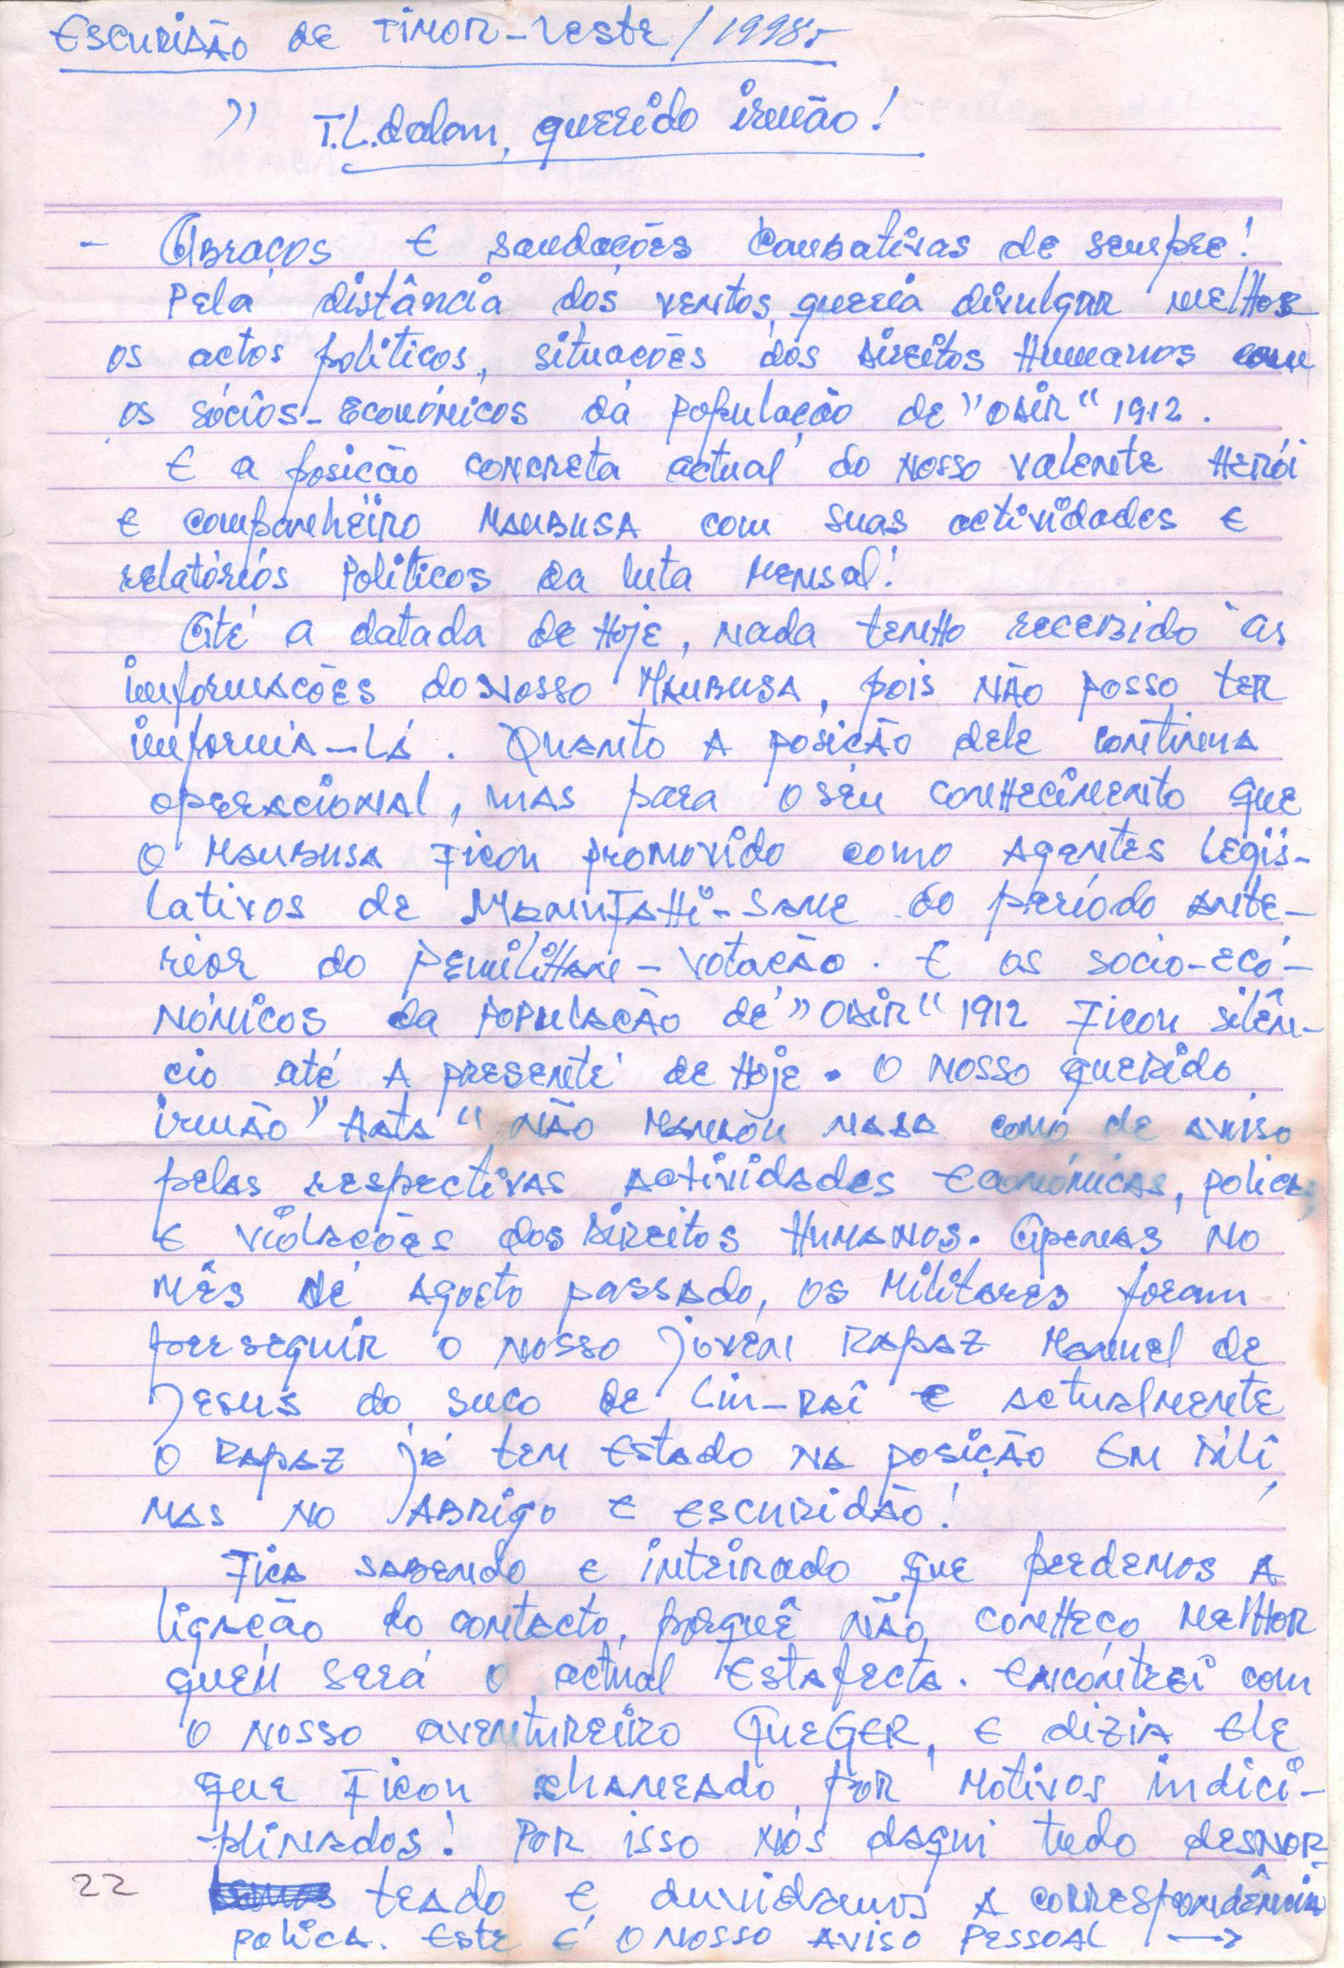 Escuridão de Timor-Leste/1998.
" T.L.dalan, querido irmão!
- Abraços e saudações Combativas de sempre!
Pela distância dos ventos, queria divulgar melhor
os actos políticos, situações dos Direitos Humanos com
os sócios-económicos da população de "ODIR" 1912.
E a posição concreta actual do nosso valente Herói
e companheiro MAUBUSA com suas actividades e
relatórios Políticos da luta Mensal!
Até a datada de Hoje, nada tenho recebido as
informações do Nosso MAUBUSA, pois não posso ter
informá-lá. Quanto a posição dele continua
operacional, mas para o seu conhecimento que
o MAUBUSA ficou promovido como Agentes Legis-
lativos de Manufahi-Same do período ante-
rior do Pemilihan-Votação. E os sócio-eco-
nómicos da População de "ODIR" 1912 ficou silên-
cio até a presente de Hoje. O nosso querido
irmão "Aata" não Mandou nada como de aviso
pelas respectivas actividades económicas, polica,
e violações dos Direitos Humanos. Apenas no
mês de Agosto passado, os Militares foram
perseguir o nosso jovem Rapaz Manuel de
Jesus do suco de Liu-Rai e actualmente
o Rapaz já tem estado na posição em Díli,
mas no Abrigo e escuridão!
Fica sabendo e inteirado que perdemos a
ligação do contacto, porquê não conheço melhor
quem será o actual Estafecta. Encontrei com
o nosso aventureiro QueGER, e dizia ele
que ficou chaneado, por Motivos indici-
plinados! Por isso nós daqui tudo desnor-
teado e duvidamos a correspondência
22
polica. Este é o nosso aviso pessoal →